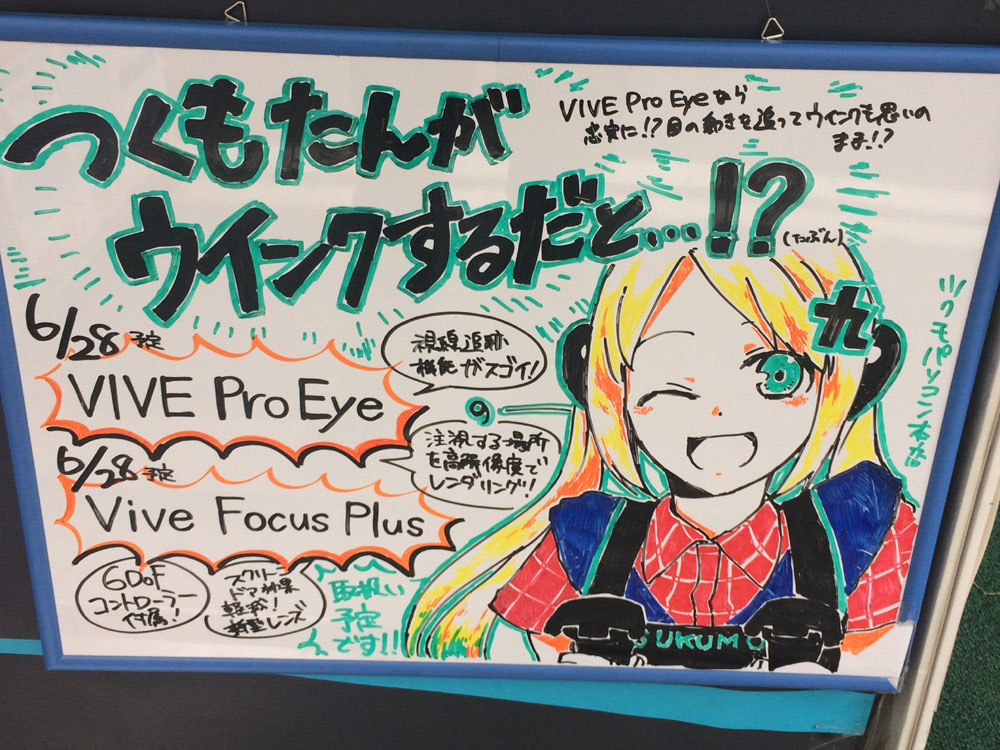 つくもたんが
ウインクするだと...!?
(たぶん)
VIVE Pro Eyeなら
忠実に!?目の動きを追ってウインクも思いの
まま!?
6/28予定
VIVE Pro Eye
視線追跡
機能がスゴイ!
注視する場所
を高解像度で
レンダリング!
6/28予定
Vive Focus Plus
6DoF
コントローラー
付属!
スクリーン
ドア効果
軽减!
新型レンズ
取扱い
予定
です!!
九
ツクモパソコン本店
UKUMO